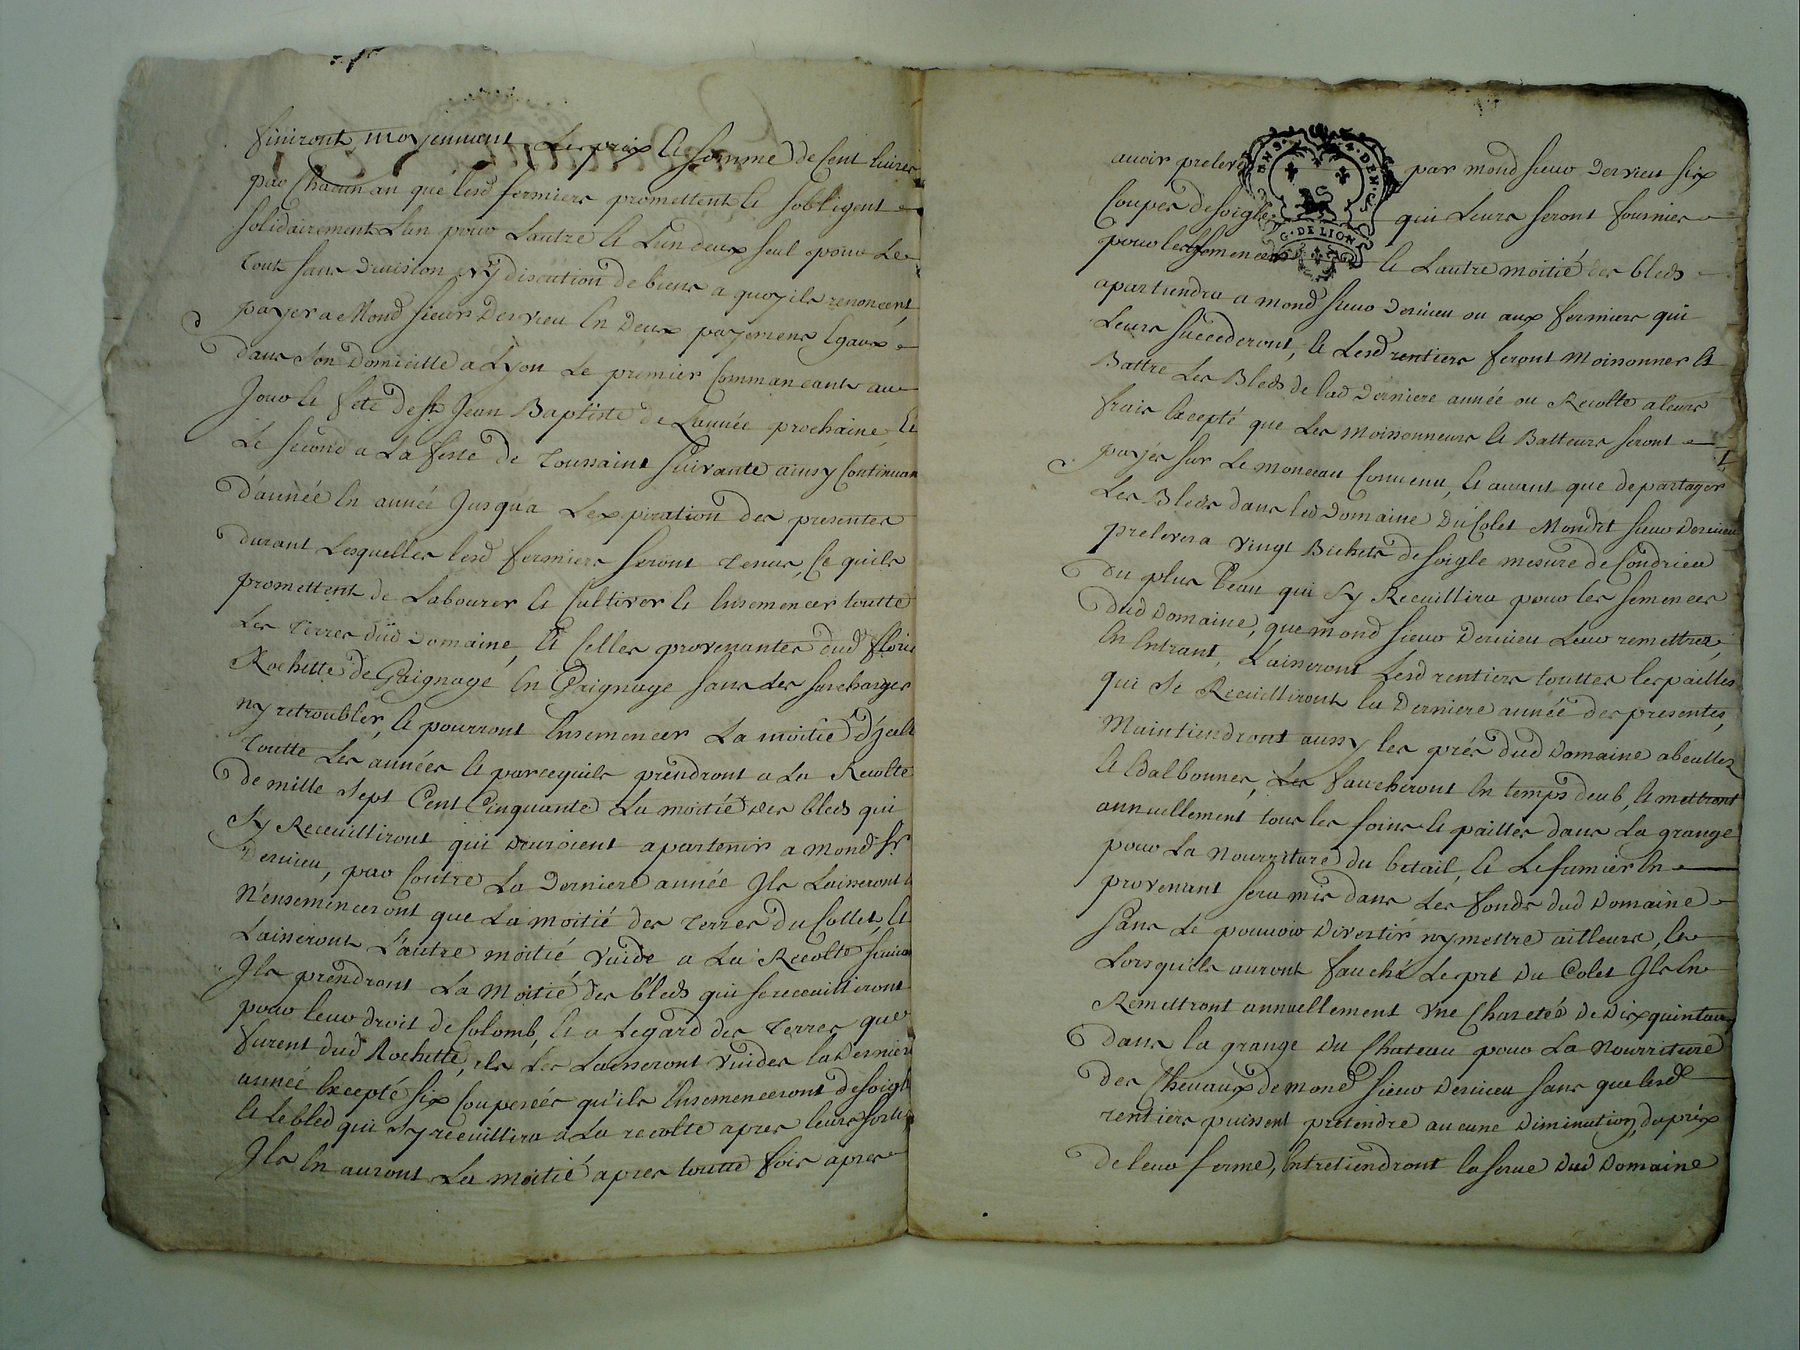 finiront, moyennant Le prix Et somme de Cent Livres
par Chacun an que lesd fermiers promettent Et sobligent
solidairement L'un pour L'autre Et L'un deux seul pour Le
tout sans Division Ny discution de biens a quoy ils renoncent
payer a Mond sieur Dervieu En Deux payemens Egaux
dans Son Domicille a Lyon Le premier Commancant au
Jour Et fete de st Jean Baptiste de L'année prochaine, Et
Le second a La feste de Toussaint suivante ainsy Continuan
d'année En année Jusqu'a L'expiration des presentes
durant Lesquelles lesd fermiers seront tenus, Ce quils
promettent de Labourer Et Cultiver Et Ensemencer toutte
Les terres dud Domaine, Et Celles provenantes dud
Rochette de Gaignage En Gaignage sans les surcharger
ny retroubler, Et pourront Ensemencer La moitié d'jcell
toutte Les années Et parcequils prendront a La Recolte
de mille sept Cent Cinquante La moitié des bleds qui
sy Recuilliront qui devroient apartenir a mond Sr
Dervieu, par Contre La Derniere année Jls Laisseront
N'ensemenceront que La moitié des terres du Collet, Et
Laisseront L'autre moitié vuide a La Recolte suivan
Jls prendront La Moitié des bleds qui se receuilliront
pour leur droit de Colomb, Et a Legard des terres que
furent dud Rochette, ils Les Laisseront vuides la Dernier
année Excepté six Couperées qu'ils Ensemenceront de soigle
Et Le bled qui sy recuillira a La recolte apres leurs sortie
Jls En auront La moitié apres toutte fois apres
avoir prelevé par mond sieur Dervieu six
Coupes de soigle qui Leurs seront fournies
pour les semences Et L'autre moitié des bleds
apartiendra a mond sieur Dervieu ou aux fermiers qui
Leurs succederont, Et Lesd rentiers feront Moissonner Et
Battre Les Bleds de lad Derniere année ou Recolte a leurs
frais Excepté que Les Moissonneurs Et Batteurs seront
payés sur Le monceau Convenu, Et avant que de partager
Les Bleds dans led Domaine Du Colet Mondit sieur Dervieu
prelevera vingt Bichets de soigle mesure de Condrieu
du plus beau qui sy Recuillira pour les semences
dud Domaine, que mond sieur Dervieu Leur remettra
En Entrant, Laisseront Lesd rentiers touttes les pailles
qui se Recuilliront la Derniere année des presentes,
Maintiendront aussy les prés dud Domaine
Et Dalbonnes, Les faucheront En temps deub, Et mettront
annuellement tous les foins Et pailles dans La grange
pour La Nourriture du betail, Et Le fumier En
provenant sera mis dans Les fonds dud Domaine
sans Le pouvoir Divertir ny mettre ailleurs, Et
Lorsquils auront fauché Le pré du Colet Jls En
Remettront annuellement Une Charetée de Dix quintaux
dans la grange du Chateau pour La Nourriture
des Chevaux de mond sieur Dervieu sans que lesd
rentiers puissent pretendre aucune Diminution du prix
de leur ferme, Entretiendront la serve dud Domaine
G. DE LION